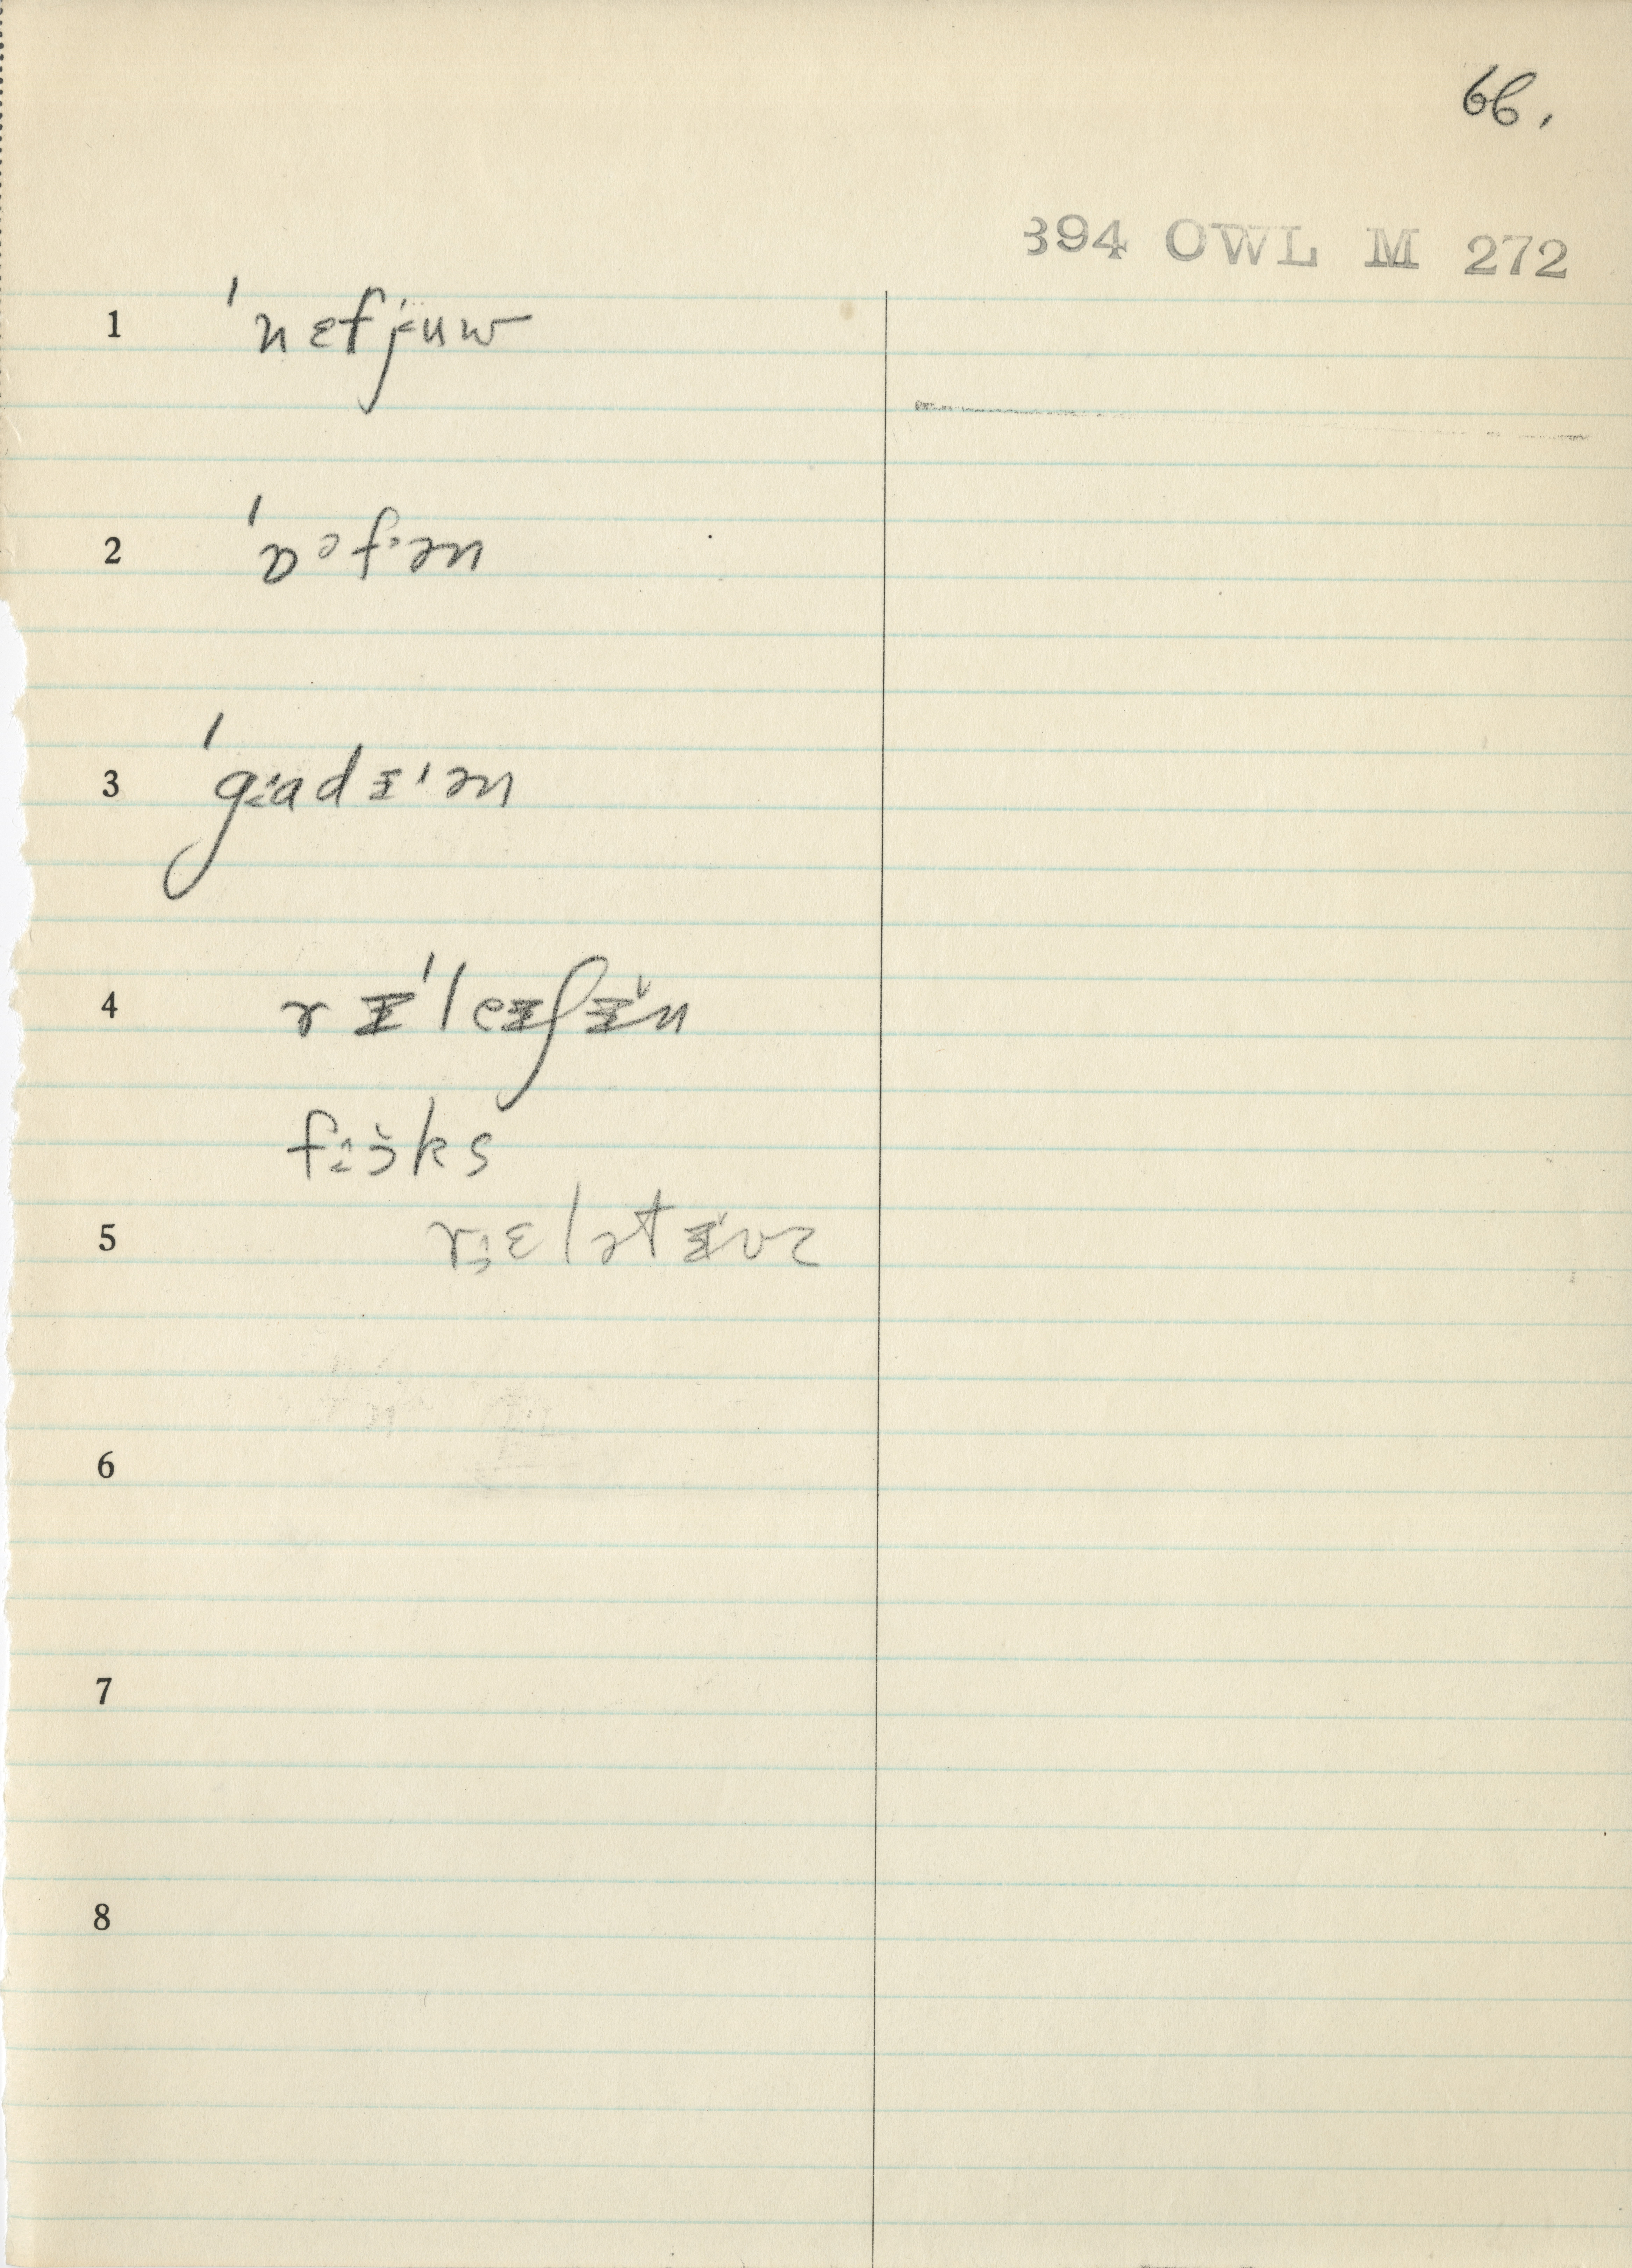 66.
394 OWL M 272
1 ˈnɛfjuw
2 ˈɒəfən
3 ˈgɑdɪˈən
4 rɪˈleɪʃɪn
foks
5 rɛlətɪvz
6
7
8